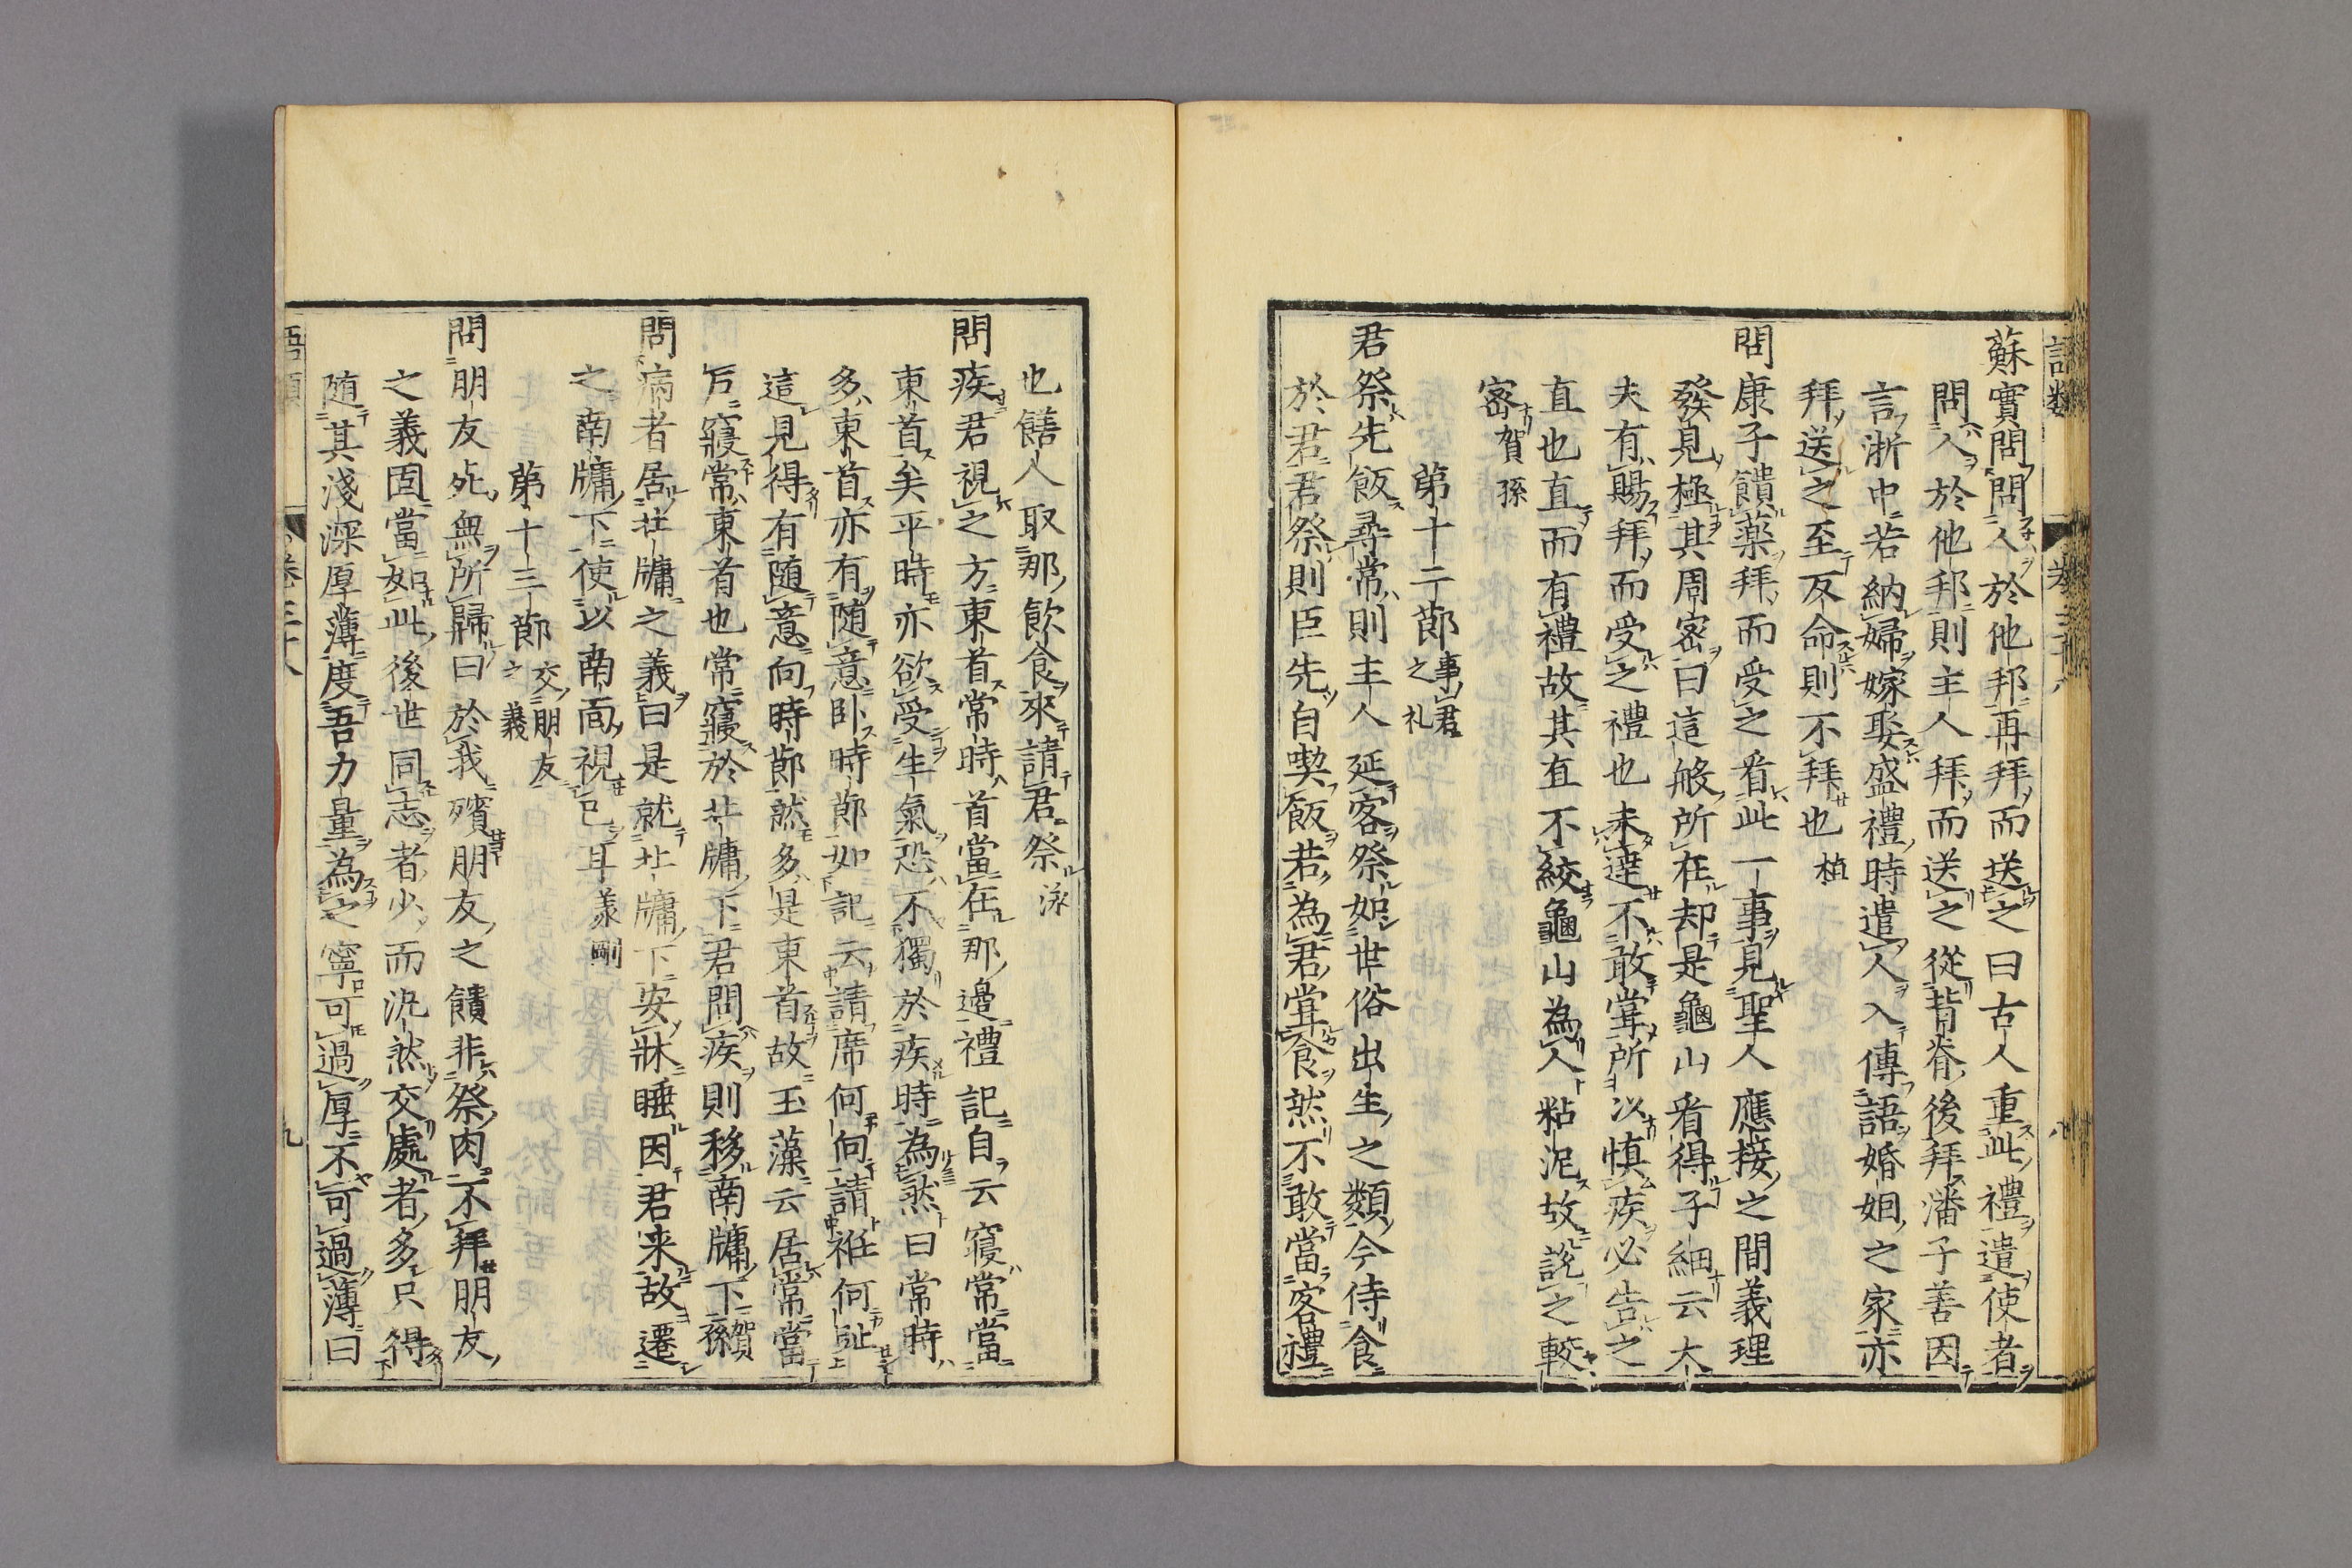 蘇實問問人於他邦再拜而送之曰古人重此禮遣使者
問人於他邦則主人拜而送之從背脊後拜潘子善因
言浙中若納婦嫁娶盛禮時遣人入傳語婚姻之家亦
拜送之至反命則不拜也 植
問康子饋藥拜而受之看此一事見聖人應接之間義理
發見極其周密曰這般所在却是龜山看得子細云大
夫有賜拜而受之禮也未達不敢嘗所以慎疾必告之
直也直而有禮故其直不絞龜山為人粘泥故說之較
密 賀孫
第十二節 事君之礼
君祭先飯尋常則主人延客祭如世俗出生之類今侍食
於君君祭則臣先自喫飯若為君嘗食然不敢當客禮
也饍人取那飲食來請君祭 泳
問疾君視之方東首常時首當在那邊禮記自云寢常當
東首矣平時亦欲受生氣恐不獨於疾時為然曰常時
多東首亦有隨意卧時節如記云請席何向請衽何趾
這見得有隨意向時節然多是東首故玉藻云居常當
戶寢常東首也常寢於北牖下君問疾則移南牖下 賀孫
問病者居北牖之義曰是就北牖下安牀睡因君來故遷
之南牖下使以南面視己耳 義剛
第十三節 交朋友之義
問朋友死無所歸曰於我殯朋友之饋非祭肉不拜朋友
之義固當如此後世同志者少而泛然交處者多只得
隨其淺深厚薄度吾力量為之寧可過厚不可過薄曰
語類 卷三十八 九